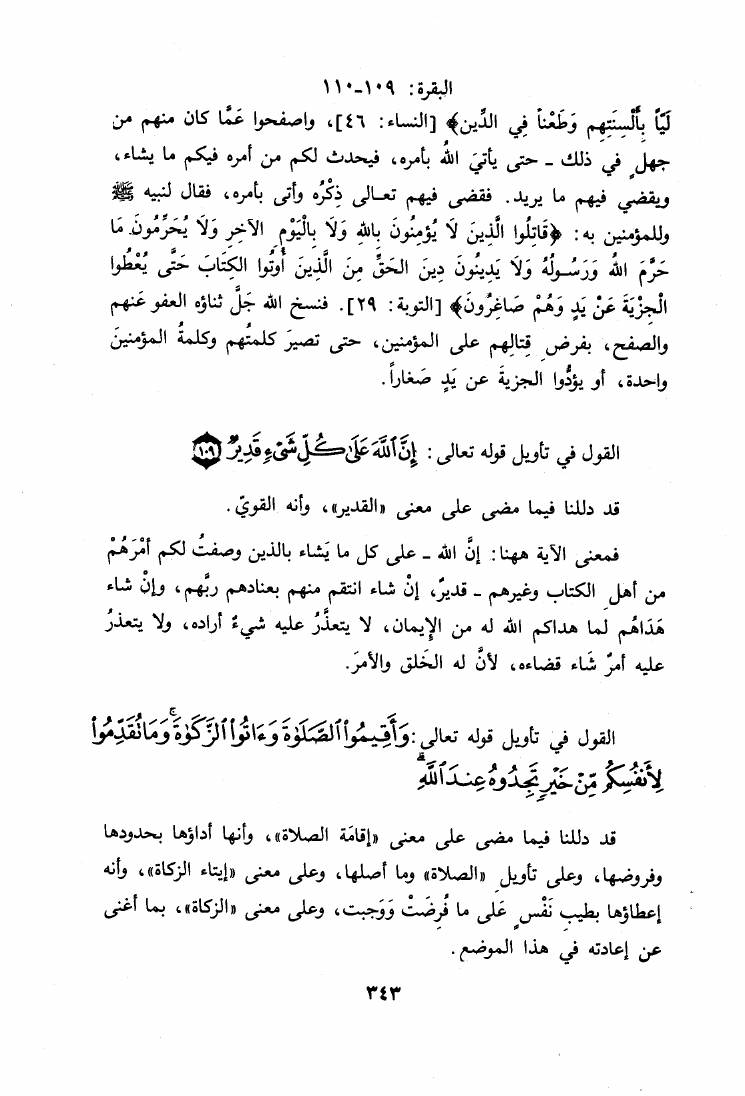 البقرة: ١٠٩-١١٠
لَيّاً بِأَلْسِنَتِهِم وَطَعْناً فِي الدِّين﴾ [النساء: ٤٦]، واصفحوا عَمَّا كان منهم من
جهلٍ في ذلك - حتى يأتيَ اللهُ بأمره، فيحدث لكم من أمره فيكم ما يشاء،
ويقضي فيهم ما يريد. فقضى فيهم تعالى ذِكْرُه وأتى بأمره، فقال لنبيه ﷺ
وللمؤمنين به: ﴿قَاتِلُوا الَّذِينَ لَا يُؤْمِنُونَ بِاللهِ وَلَا بِالْيَوْمِ الآخِرِ وَلَا يُحَرِّمُونَ مَا
حَرَّمَ اللهُ وَرَسُولُهُ وَلَا يَدِينُونَ دِينَ الحَقِّ مِنَ الَّذِينَ أُوتُوا الكِتَابَ حَتَّى يُعْطُوا
الْجِزْيَةَ عَنْ يَدٍ وَهُمْ صَاغِرُونَ﴾ [التوبة: ٢٩]. فنسخ الله جَلَّ ثناؤه العفو عَنهم
والصفح، بفرض قِتالِهم على المؤمنين، حتى تصيرَ كلمتُهم وكلمةُ المؤمنينَ
واحدة، أو يؤدُّوا الجزيةَ عن يَدٍ صَغاراً.
القول في تأويل قوله تعالى: إِنَّ ٱللَّهَ عَلَىٰ كُلِّ شَىْءٍ قَدِيرٌ ١٠٩
قد دللنا فيما مضى على معنى «القدير»، وأنه القويّ.
فمعنى الآية ههنا: إنَّ الله - على كل ما يَشاء بالذين وصفتُ لكم أمْرَهُمْ
من أهلِ الكتاب وغيرهم - قديرٌ، إنْ شاء انتقم منهم بعنادهم ربَّهم، وإنْ شاء
هَدَاهُم لَما هداكم الله له من الإيمان، لا يتعذَّرُ عليه شيءٌ أراده، ولا يتعذرُ
عليه أمرٌ شَاء قضاءه، لأنَّ له الخَلق والأمرَ.
القول في تأويل قوله تعالى: وَأَقِيمُوا۟ ٱلصَّلَوٰةَ وَءَاتُوا۟ ٱلزَّكَوٰةَ ۚ وَمَا تُقَدِّمُوا۟
لِأَنفُسِكُم مِّنْ خَيْرٍ تَجِدُوهُ عِندَ ٱللَّهِ ۗ
قد دللنا فيما مضى على معنى «إقامَة الصلاة»، وأنها أداؤها بحدودها
وفروضها، وعلى تأويلِ «الصلاة» وما أصلها، وعلى معنى «إيتاء الزكاة»، وأنه
إعطاؤها بطيبِ نَفْسٍ عَلى ما فُرِضَتْ وَوَجبت، وعلى معنى «الزكاة»، بما أغنى
عن إعادته في هذا الموضع.
٣٤٣